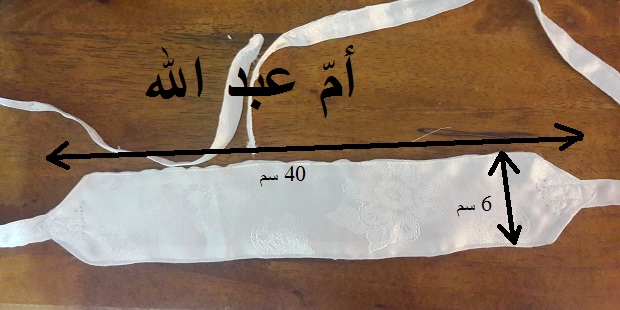 أمّ عبد الله
40 سم
6 سم